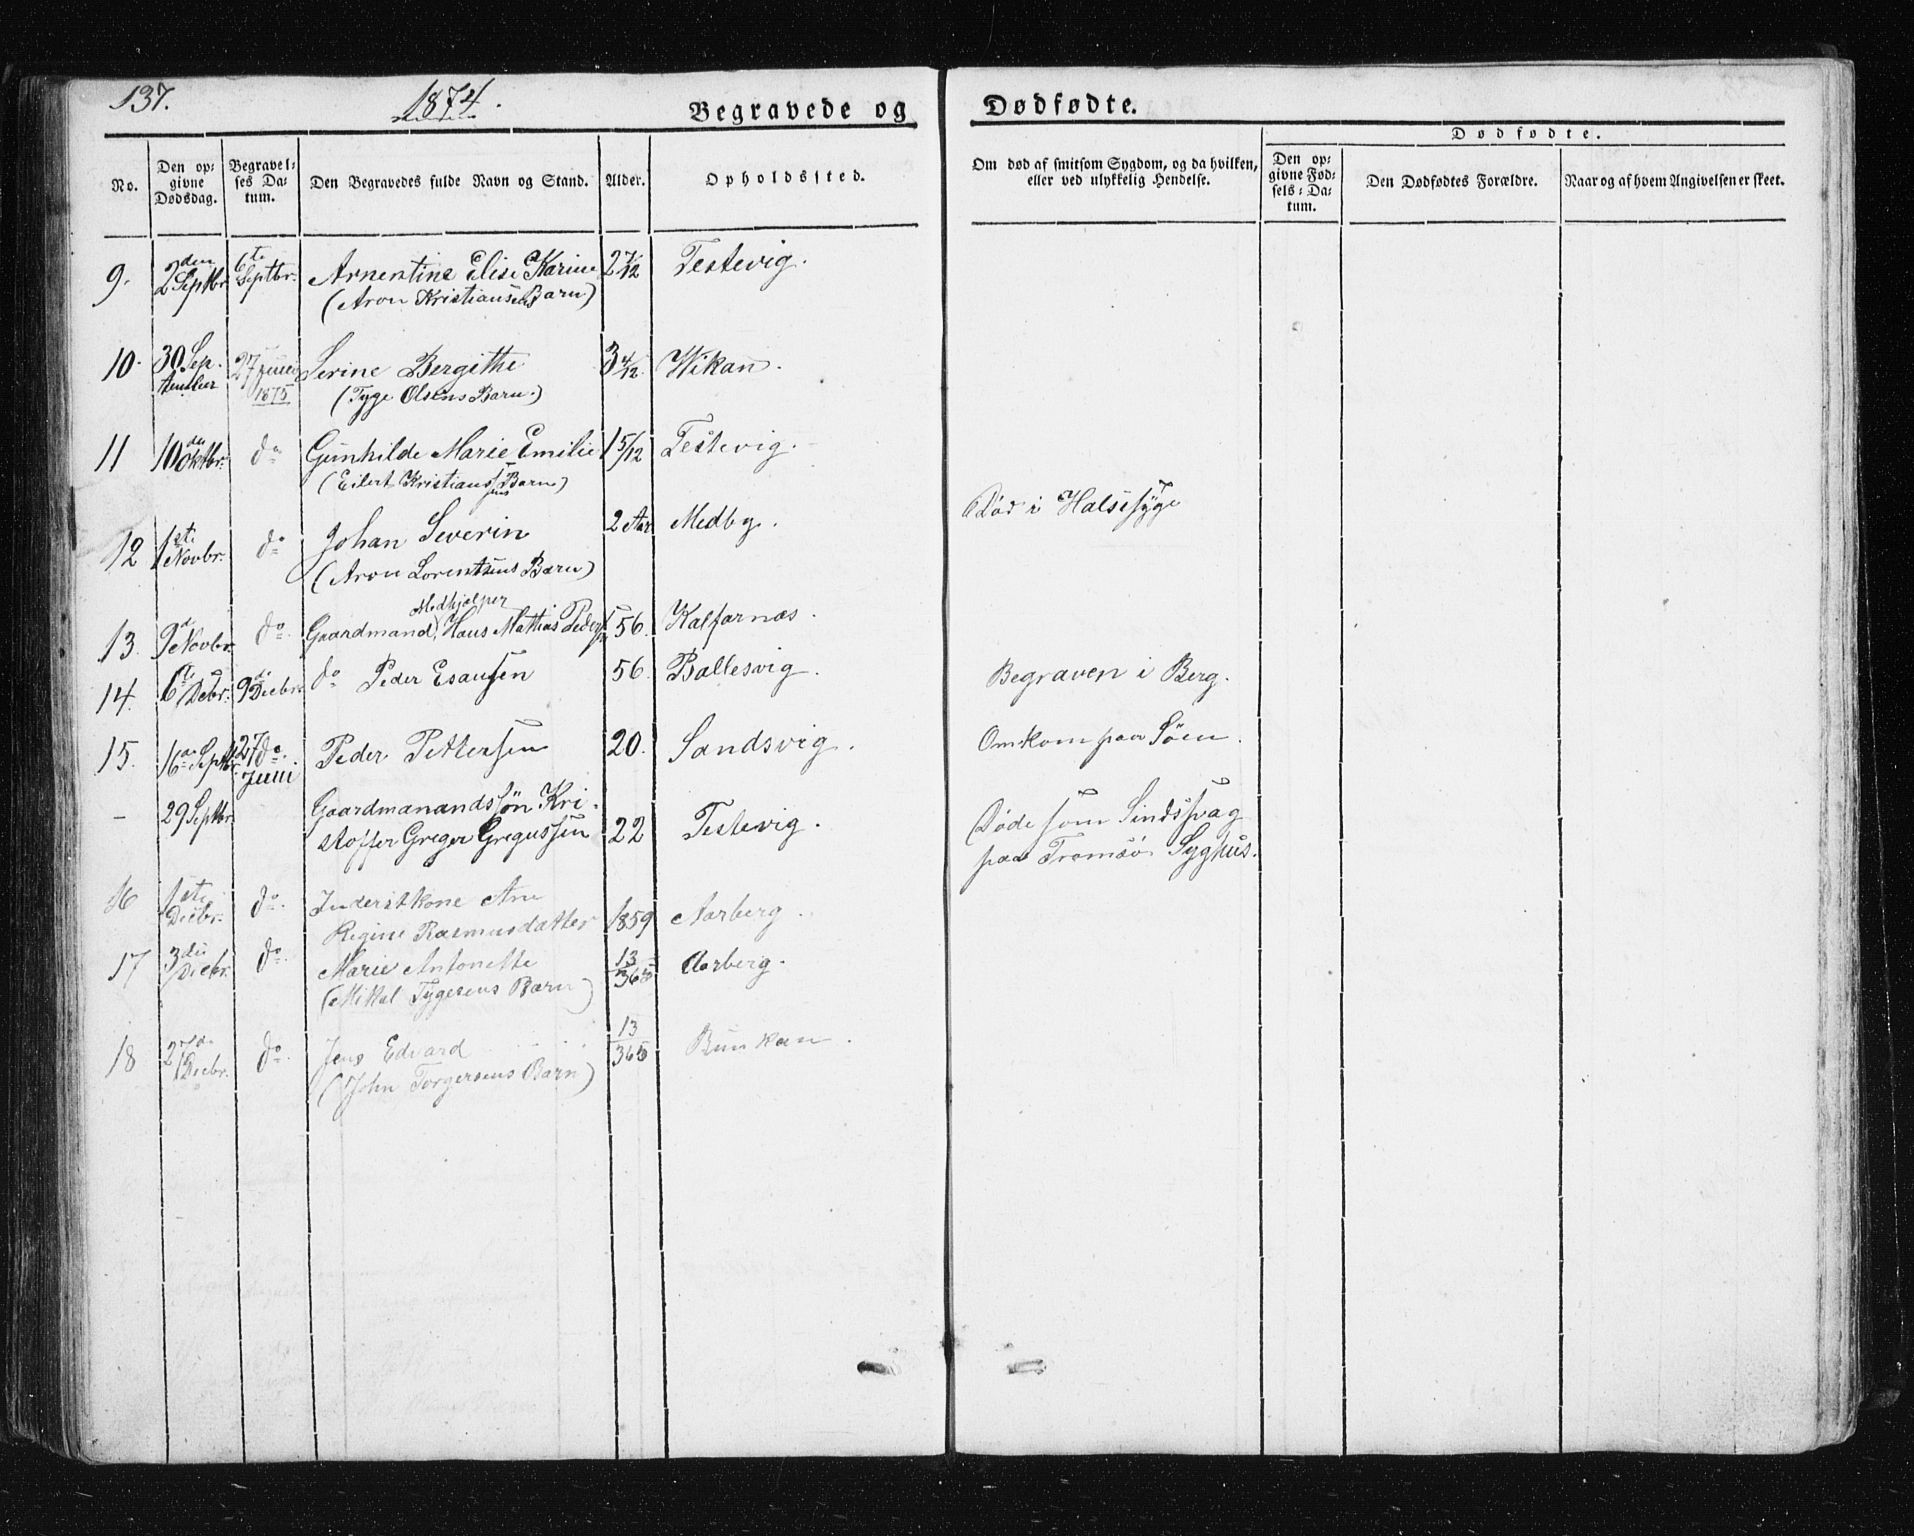 137.
1874.
Begravede og Dødfødte.
No.
Den opgivne Dødsdag.
Begravelses Datum.
Den Begravedes fulde Navn og Stand.
Alder.
Opholdssted.
Om død af smitsom Sygdom, og da hvilken, eller ved ulykkelig Hendelse.
Dødfødte.
Den opgivne Fødsels-Datum.
Den Dødfødtes Forældre.
Naar og af hvem Angivelsen er skeet.
9. 2den Septbr. 6te Septbr. Arnentine Elise Karine 2 7/12 Testevig.
(Aron Kristiansens Barn)
10. 30 September 27 Juni 1875 Serine Bergithe 3 4/12 Wikan.
(Tyge Olsens Barn.)
11 10de Oktbr. do Gunhilde Marie Emilie 1 5/12 Testevig.
(Eilert Kristiansens Barn)
12 1ste Novbr. do Johan Severin 2 Aar Medby. Død i Halsesyge
(Aron Lorentsens Barn)
Medhjælper
13. 9d Novbr. do. Gaardmand, Hans Mathias Peders. 56. Kalfarnæs.
14. 6te Debr. 9de Decbr. do Peder Esausen 56. Ballesvig. Begraven i Berg.
15. 16de Septbr. 27 do. Juni Peder Pettersen 20. Sandsvig. Omkom paa Søen.
- 29 Septbr. Gaardmanandssøn Kri-
stoffer Greger Gregussen 22 Testevig. Døde som Sindssvag
paa Tromsø Syghus.
16 1ste Decbr. do. Inderstkone Ane
Regine Rasmusdatter 1859 Aarberg.
17 3die Decbr. do. Marie Antonette 13/365 Aarberg.
(Mikal Tygesens Barn)
18 27de Decbr. do. Jens Edvard 13/365 Bunkan.
(John Torgersens Barn)